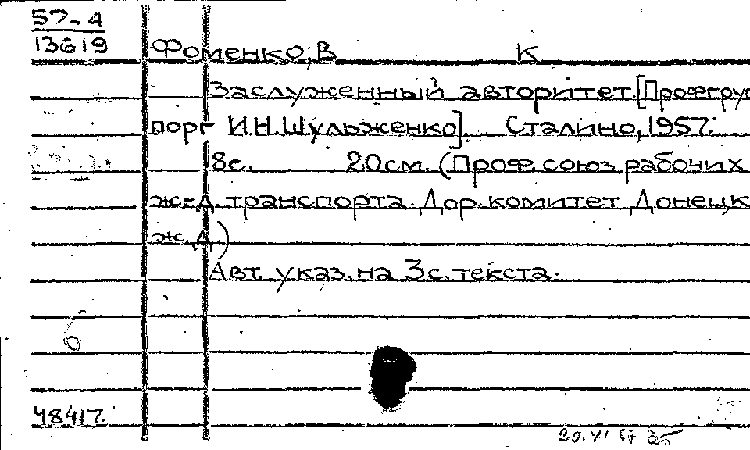 57-4
13619
Фоменко, В К
Заслуженный авторитет [Профгруп
порг И.Н. Шульженко]. Сталино, 1957.
8с. 20см. (Проф. союз рабочих
ж-д. транспорта. Дор. комитет Донецк
ж. д)
Авт. указ. на 3с. текста.
б
48417.